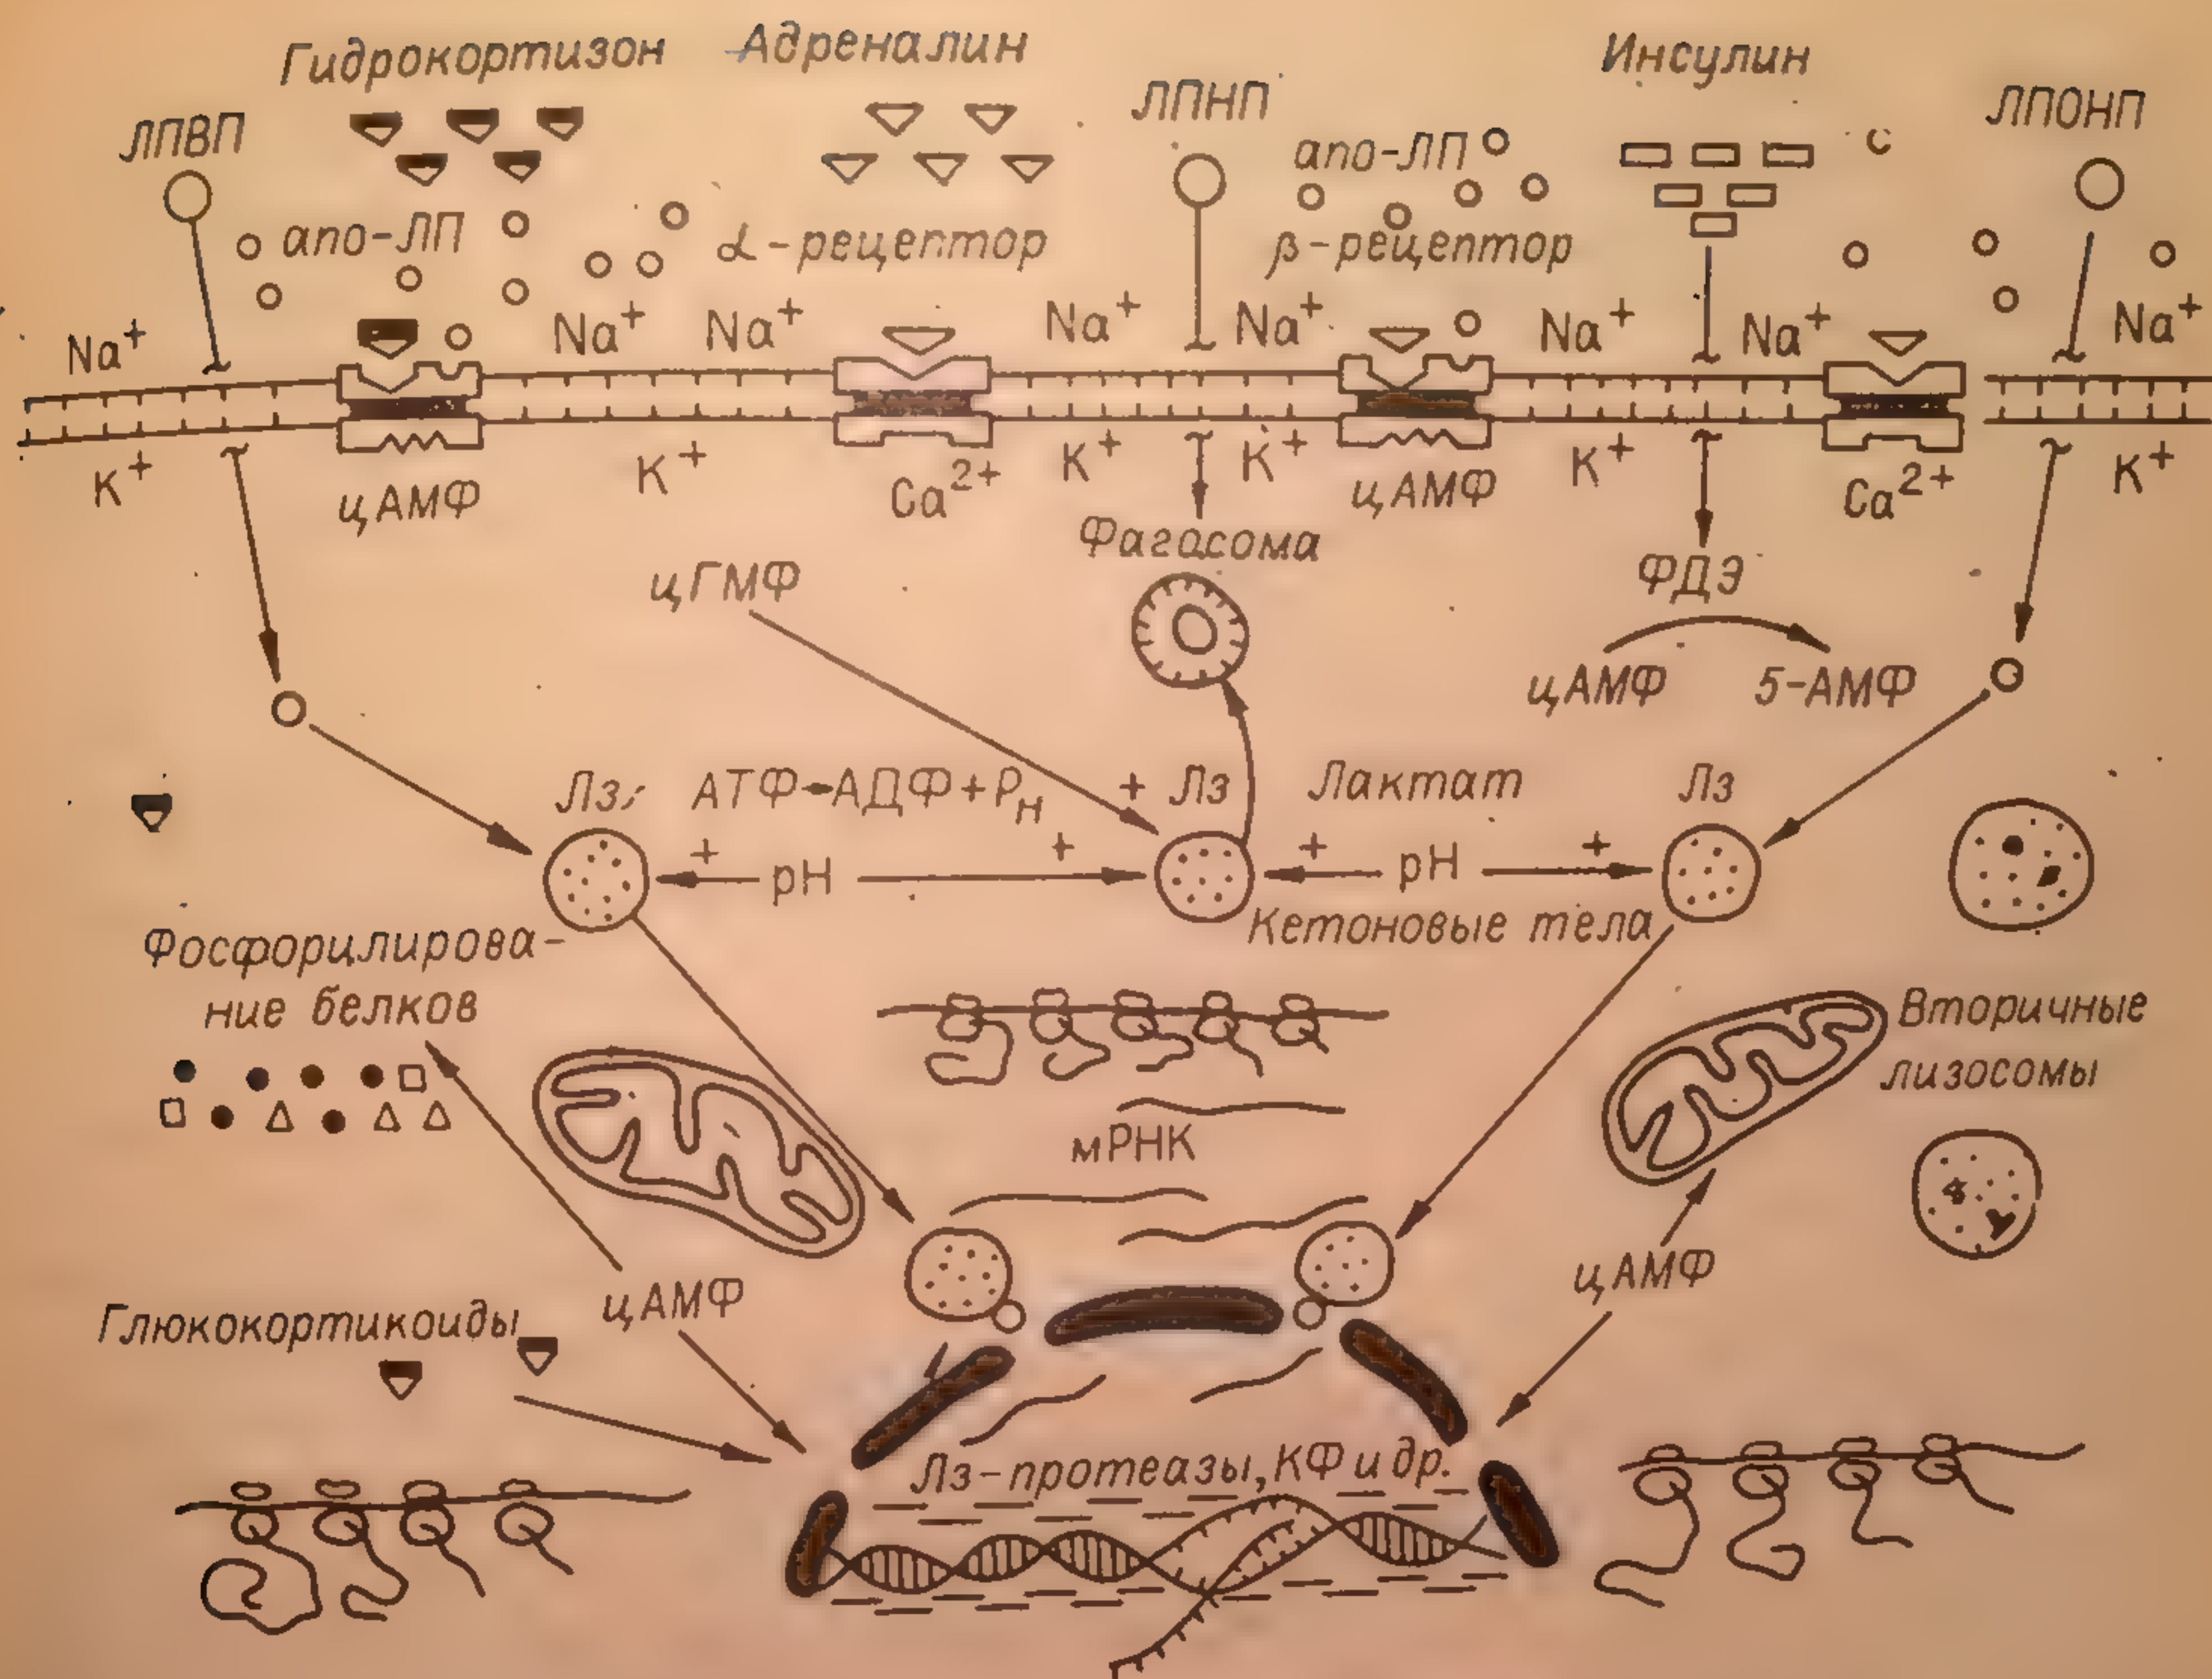 Гидрокортизон
Адреналин
Инсулин
ЛПВП
ЛПНП
ЛПОНП
апо-ЛП
апо-ЛП
α-рецептор
β-рецептор
Na⁺
Na⁺
Na⁺
Na⁺
Na⁺
Na⁺
Na⁺
Na⁺
K⁺
K⁺
K⁺
K⁺
K⁺
K⁺
цАМФ
Ca²⁺
цАМФ
Ca²⁺
Фагосома
цГМФ
ФДЭ
цАМФ
5-АМФ
Лз
АТФ-АДФ+Pн
+ Лз
Лактат
Лз
+
pH
+
+
pH
+
Кетоновые тела
Фосфорилирова-
ние белков
Вторичные
лизосомы
мРНК
цАМФ
цАМФ
Глюкокортикоиды
Лз-протеазы, КФ и др.